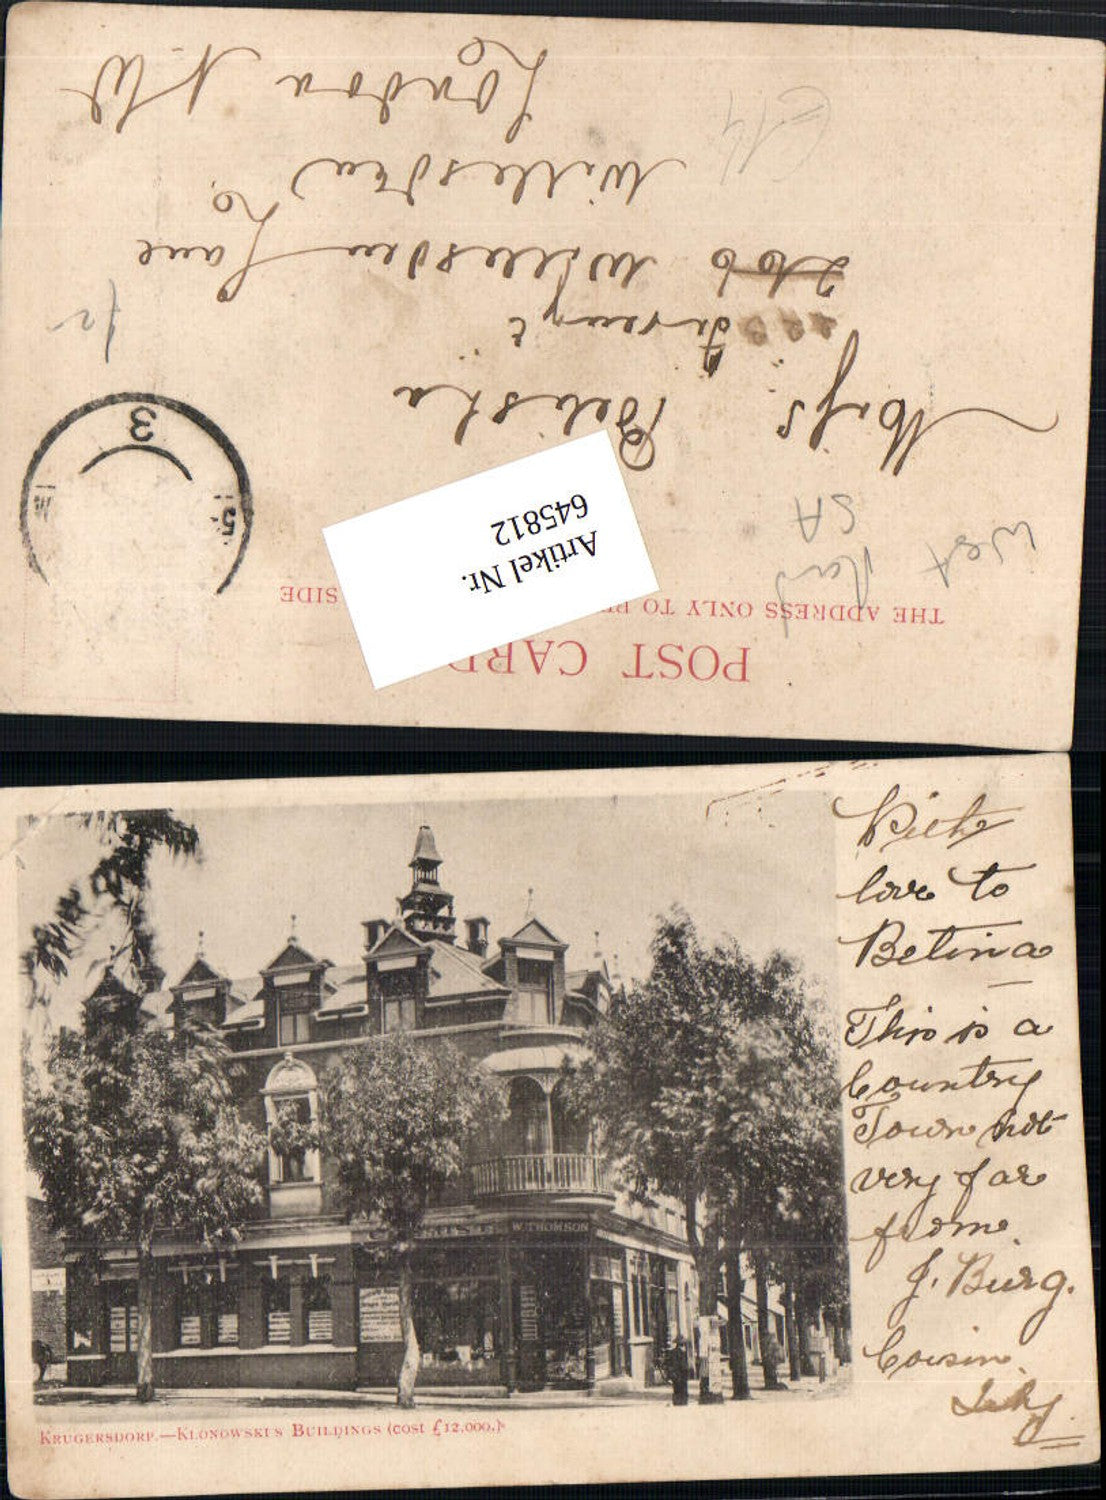 POST CARD
THE ADDRESS ONLY TO BE SIDE
Artikel Nr.
645812
West
Rand
SA
3
5
Miss Belisha
223
266 Willesden Lane
Willesden
London N.W.
W. THOMSON
KRUGERSDORP.—KLONOWSKI'S BUILDINGS (COST £12,000.)
With
love to
Betina
This is a
Country
Town not
very far
from
J. Burg.
Cousin